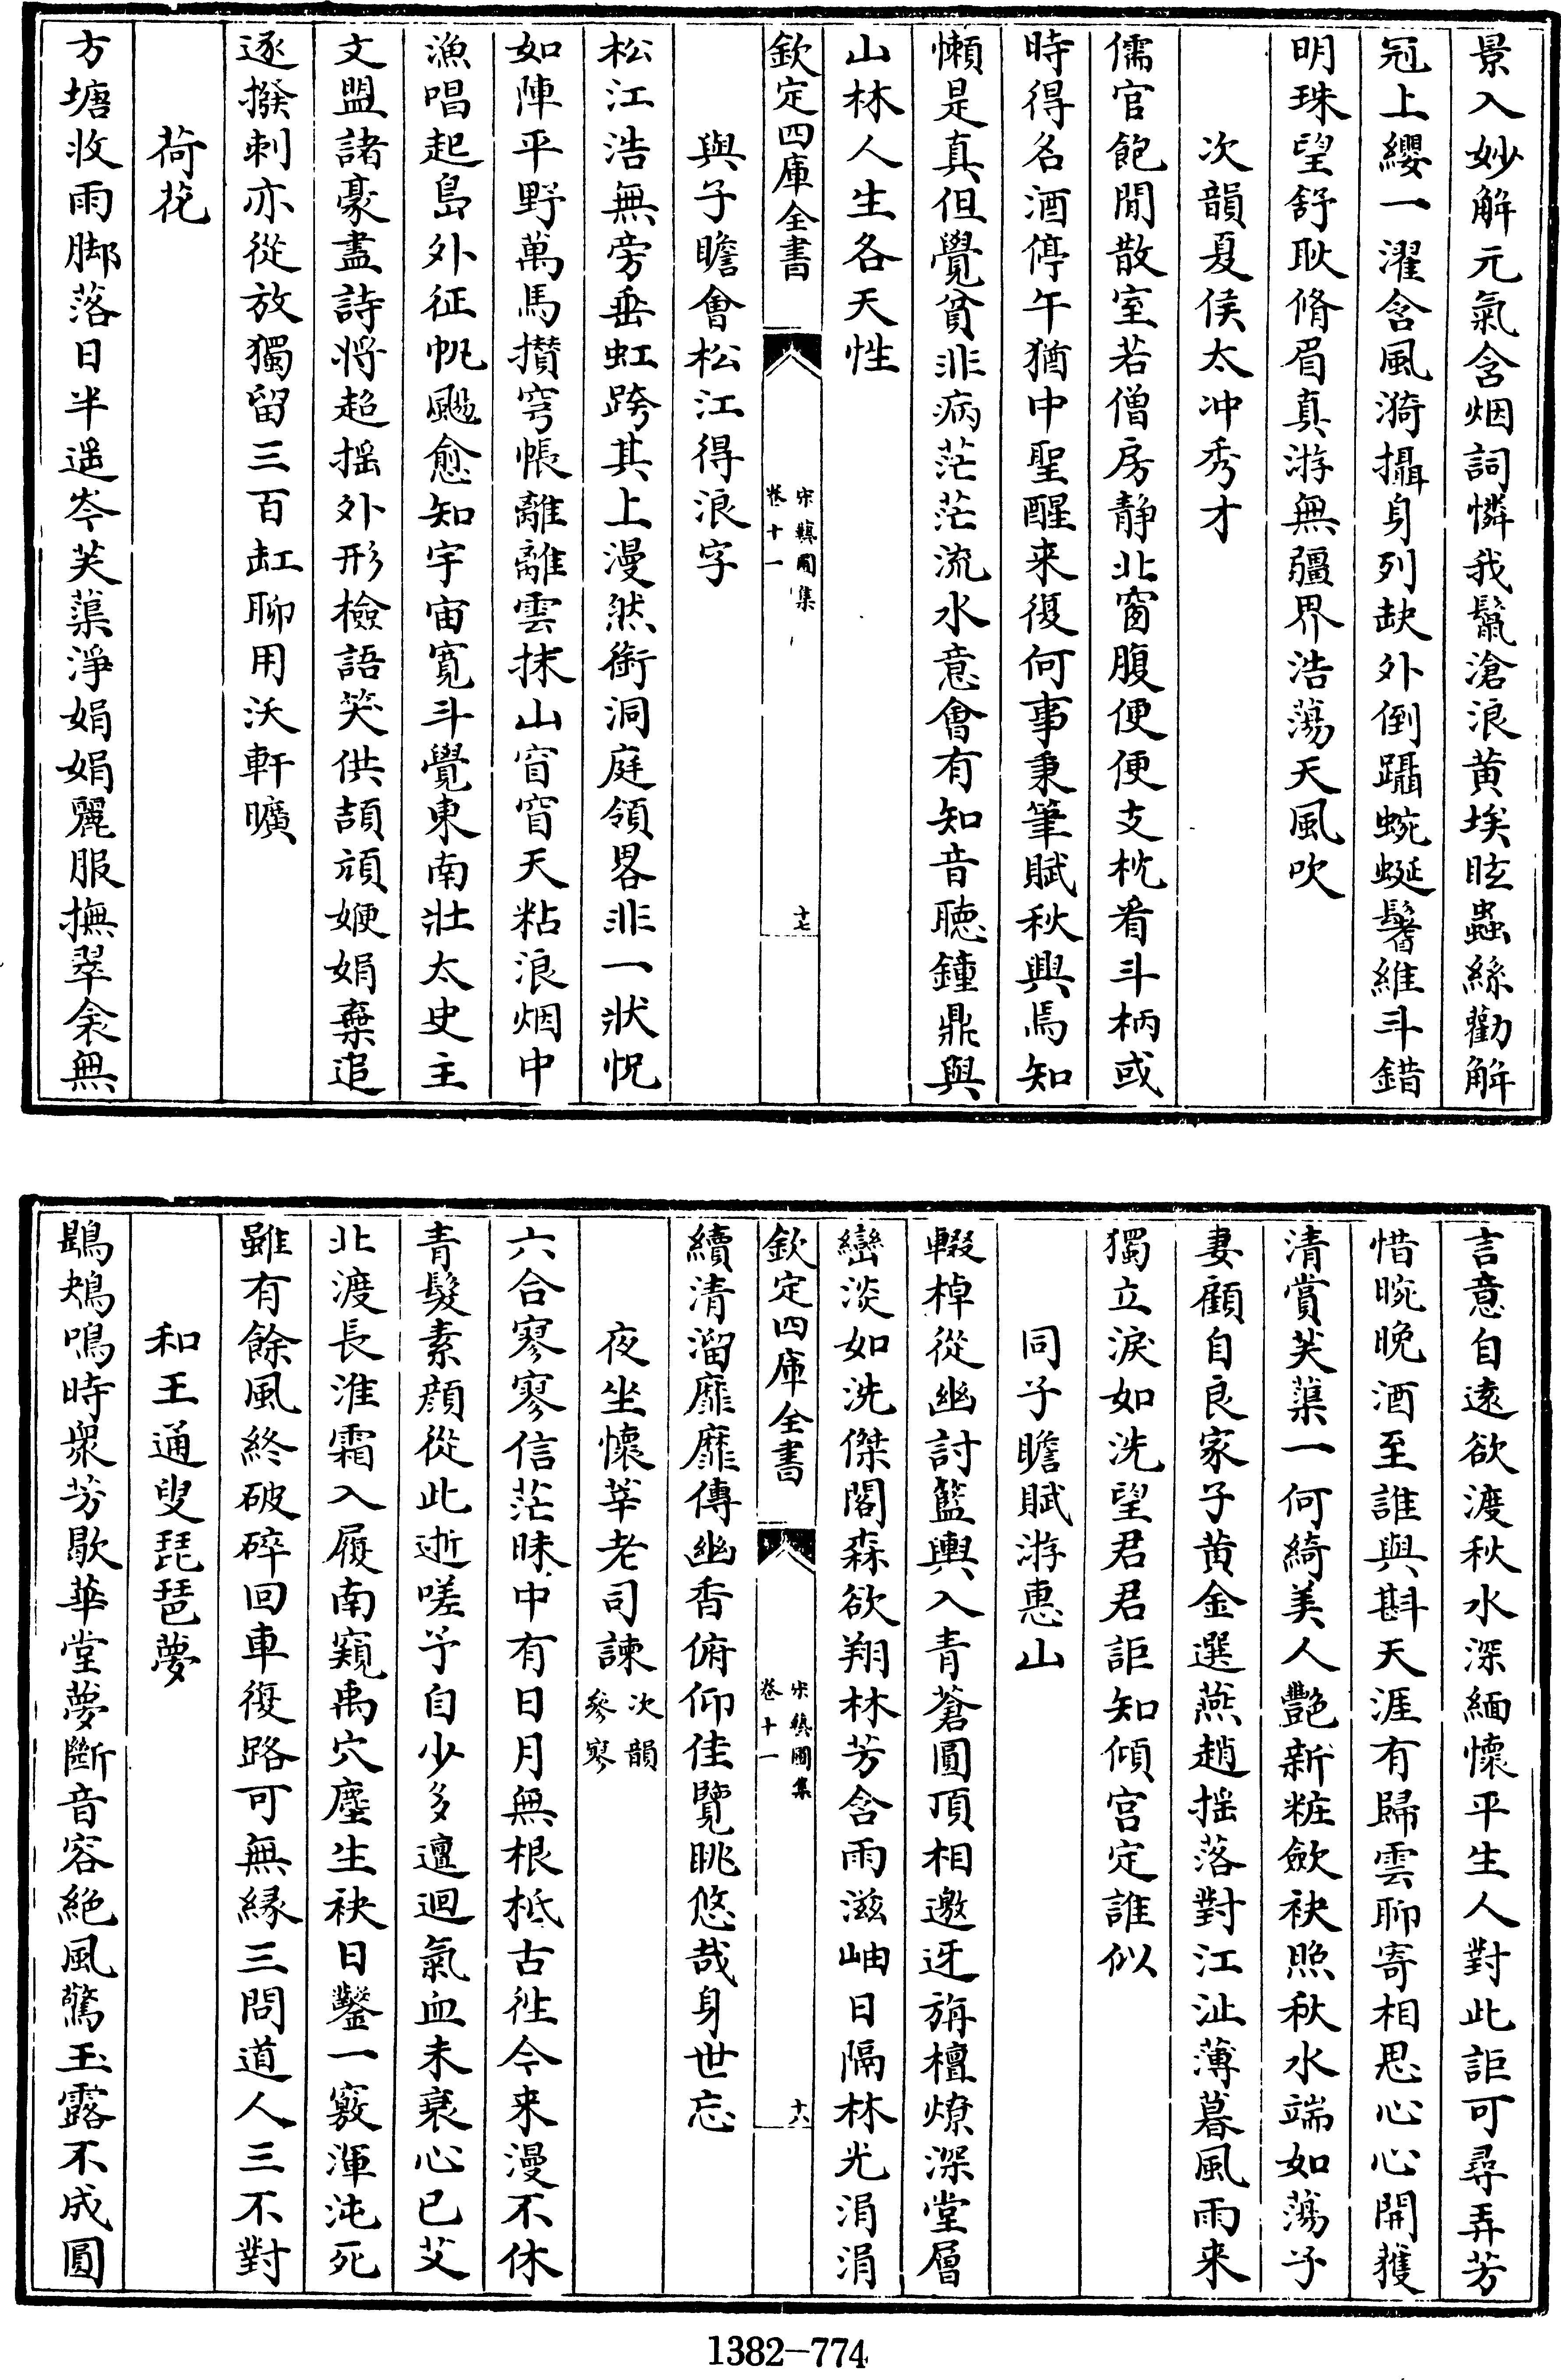 景入妙解元氣含烟詞憐我鬣滄浪黄埃眩蟲絲勸解
冠上纓一濯含風漪攝身列缺外倒躡蜿蜒鬐維斗錯
明珠望舒耿脩眉真游無疆界浩蕩天風吹
次韻夏侯太冲秀才
儒官飽閒散室若僧房靜北窗腹便便支枕看斗柄或
時得名酒停午猶中聖醒来復何事秉筆賦秋興焉知
懶是真但覺貧非病茫茫流水意會有知音聽鐘鼎與
山林人生各天性
欽定四庫全書
宋藝圃集
卷十一
十七
與子瞻會松江得浪字
松江浩無旁垂虹跨其上漫然銜洞庭領畧非一狀怳
如陣平野萬馬攢穹帳離離雲抹山窅窅天粘浪烟中
漁唱起島外征帆颺愈知宇宙寛斗覺東南壯太史主
文盟諸豪盡詩將超揺外形檢語笑供頡頏嬋娟棄追
逐撥剌亦從放獨留三百缸聊用沃軒曠
荷花
方塘收雨脚落日半遥岑芙蕖淨娟娟麗服撫翠衾無
言意自遠欲渡秋水深緬懷平生人對此詎可尋弄芳
惜晼晚酒至誰與斟天涯有歸雲聊寄相思心心開獲
清賞芙蕖一何綺美人艷新粧歛袂照秋水端如蕩子
妻顧自良家子黄金選燕趙揺落對江沚薄暮風雨来
獨立淚如洗望君君詎知傾宫定誰似
同子瞻賦游惠山
輟棹從幽討籃輿入青蒼圓頂相邀迓旃檀燎深堂層
巒淡如洗傑閣森欲翔林芳含雨滋岫日隔林光涓涓
欽定四庫全書
宋藝圃集
卷十一
十八
續清溜靡靡傳幽香俯仰佳覽眺悠哉身世忘
夜坐懷莘老司諫次韻參寥
六合寥寥信茫昧中有日月無根柢古徃今来漫不休
青髮素顔從此逝嗟予自少多邅迴氣血未衰心已艾
北渡長淮霜入履南窺禹穴塵生袂日鑿一竅渾沌死
雖有餘風終破碎回車復路可無縁三問道人三不對
和王通叟琵琶夢
鵾鴂鳴時衆芳歇華堂夢斷音容絶風驚玉露不成圓
1382-774